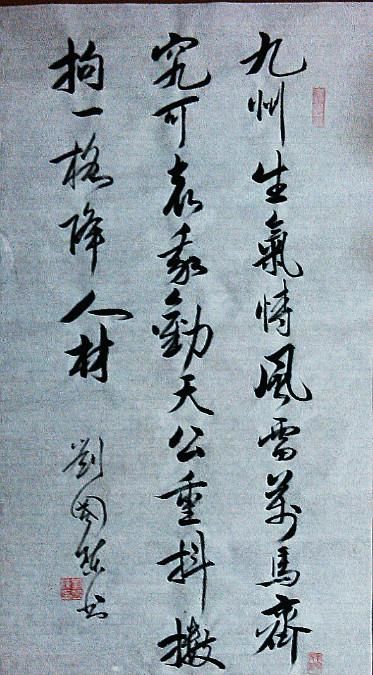 九州生氣恃風雷萬馬齊
究可哀我勸天公重抖擻
拘一格降人材
劉國書